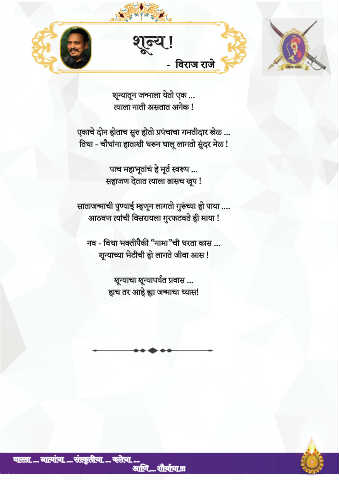 शून्य !
- विराज राजे
शून्यातून जन्माला येतो एक ...
त्याला नाती असतात अनेक !
एकाचे दोन होताच सुरु होतो प्रपंचाचा गमतीदार खेळ ...
तिघा - चौघांना हाताशी धरून घालू लागतो सुंदर मेळ !
पाच महाभूतांचं हे मूर्त स्वरूप ...
सहाजण देतात त्याला त्रासच खूप !
साताजन्माची पुण्याई म्हणून लागतो गुरूंच्या हो पाया ....
आठवण त्यांची विसरायला गुरफटवते ही माया !
नव - विधा भक्तीपैकी "नामा"ची धरता कास ...
शून्याच्या भेटीची हो लागते जीवा आस !
शून्याचा शून्यापर्यंत प्रवास ...
हाच तर आहे ह्या जन्माचा ध्यास!
वारसा ... वाटांचा ... संस्कृतीचा ... कलेचा ...
आणि ... शौर्याचा !!!